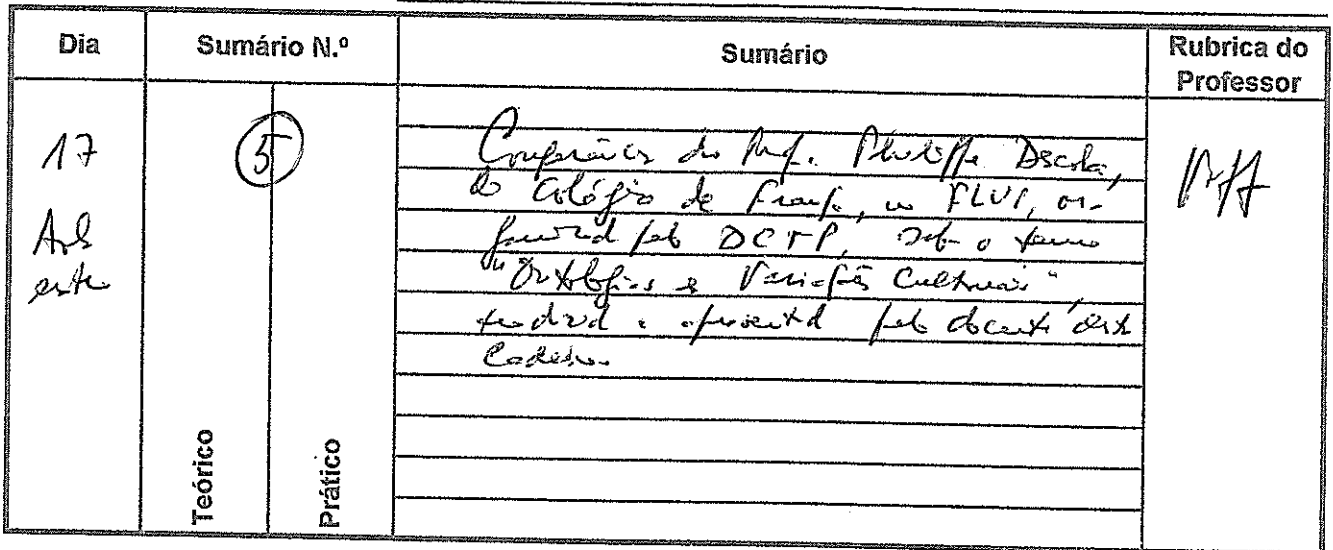 Dia Sumário N.º Sumário Rubrica do Professor
17 5
Conferência do Prof. Philippe Descola,
do Colégio de França, na FLUP, or-
ganizada pelo DCTP, sob o tema
"Ontologias e Variações Culturais",
traduzida e apresentada pelo docente desta
Cadeira.
Teórico
Prático